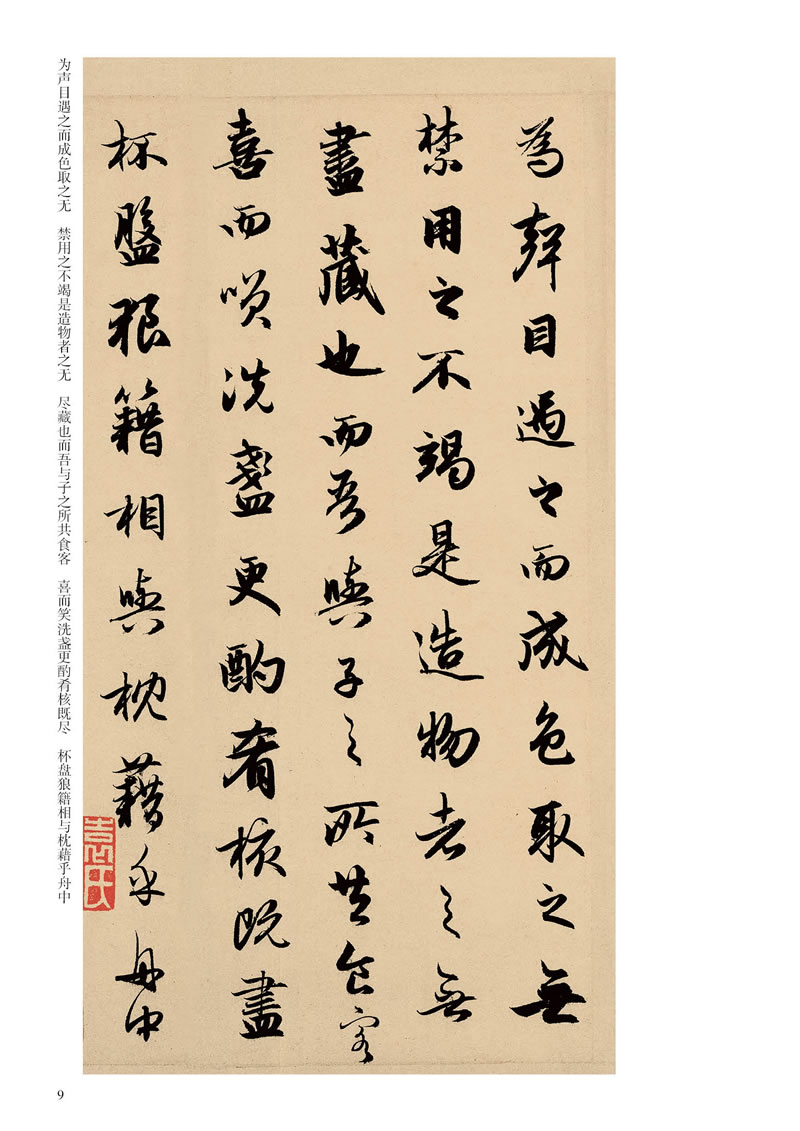 为声目遇之而成色取之无　禁用之不竭是造物者之无　尽藏也而吾与子之所共食客　喜而笑洗盏更酌肴核既尽　杯盘狼籍相与枕藉乎舟中
為聲目遇之而成色取之無
禁用之不竭是造物者之無
盡藏也而吾與子之所共食客
喜而咲洗盞更酌肴核既盡
杯盤狼籍相與枕藉乎舟中
袁氏
9